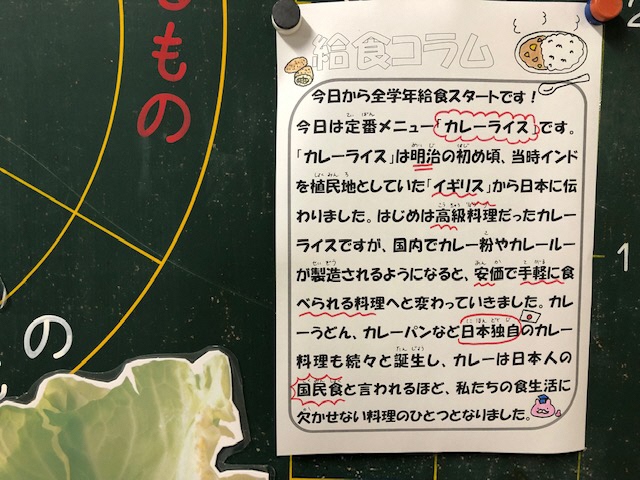 もの
の
2
1
給食コラム
今日から全学年給食スタートです！
今日は定番メニュー「カレーライス」です。
「カレーライス」は明治の初め頃、当時インド
を植民地としていた「イギリス」から日本に伝
わりました。はじめは高級料理だったカレー
ライスですが、国内でカレー粉やカレールー
が製造されるようになると、安価で手軽に食
べられる料理へと変わっていきました。カレ
ーうどん、カレーパンなど日本独自のカレー
料理も続々と誕生し、カレーは日本人の
国民食と言われるほど、私たちの食生活に
欠かせない料理のひとつとなりました。